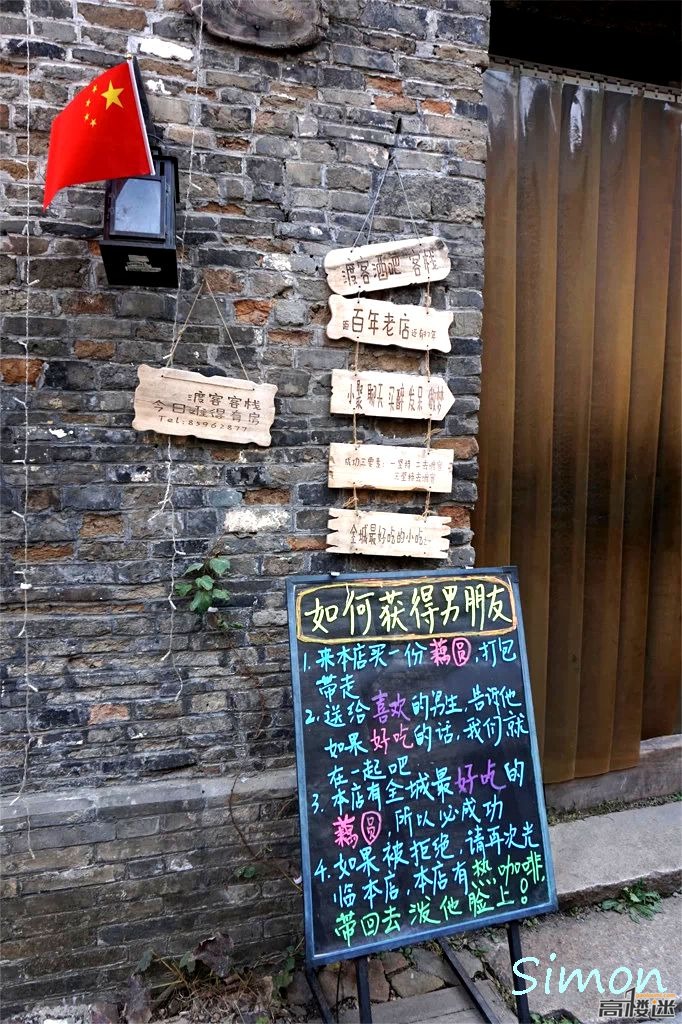 渡客酒吧 客栈
距百年老店还有97年
小聚 聊天 买醉 发呆 做梦
成功三要素:一坚持 二去渡客
三坚持去渡客
全城最好吃的小吃
渡客客栈
今日难得有房
Tel:85962877
如何获得男朋友
1.来本店买一份藕圆,打包
带走
2.送给喜欢的男生,告诉他
如果好吃的话,我们就
在一起吧
3.本店有全城最好吃的
藕圆,所以必成功
4.如果被拒绝,请再次光
临本店,本店有热咖啡,
带回去泼他脸上!
Simon
高楼迷